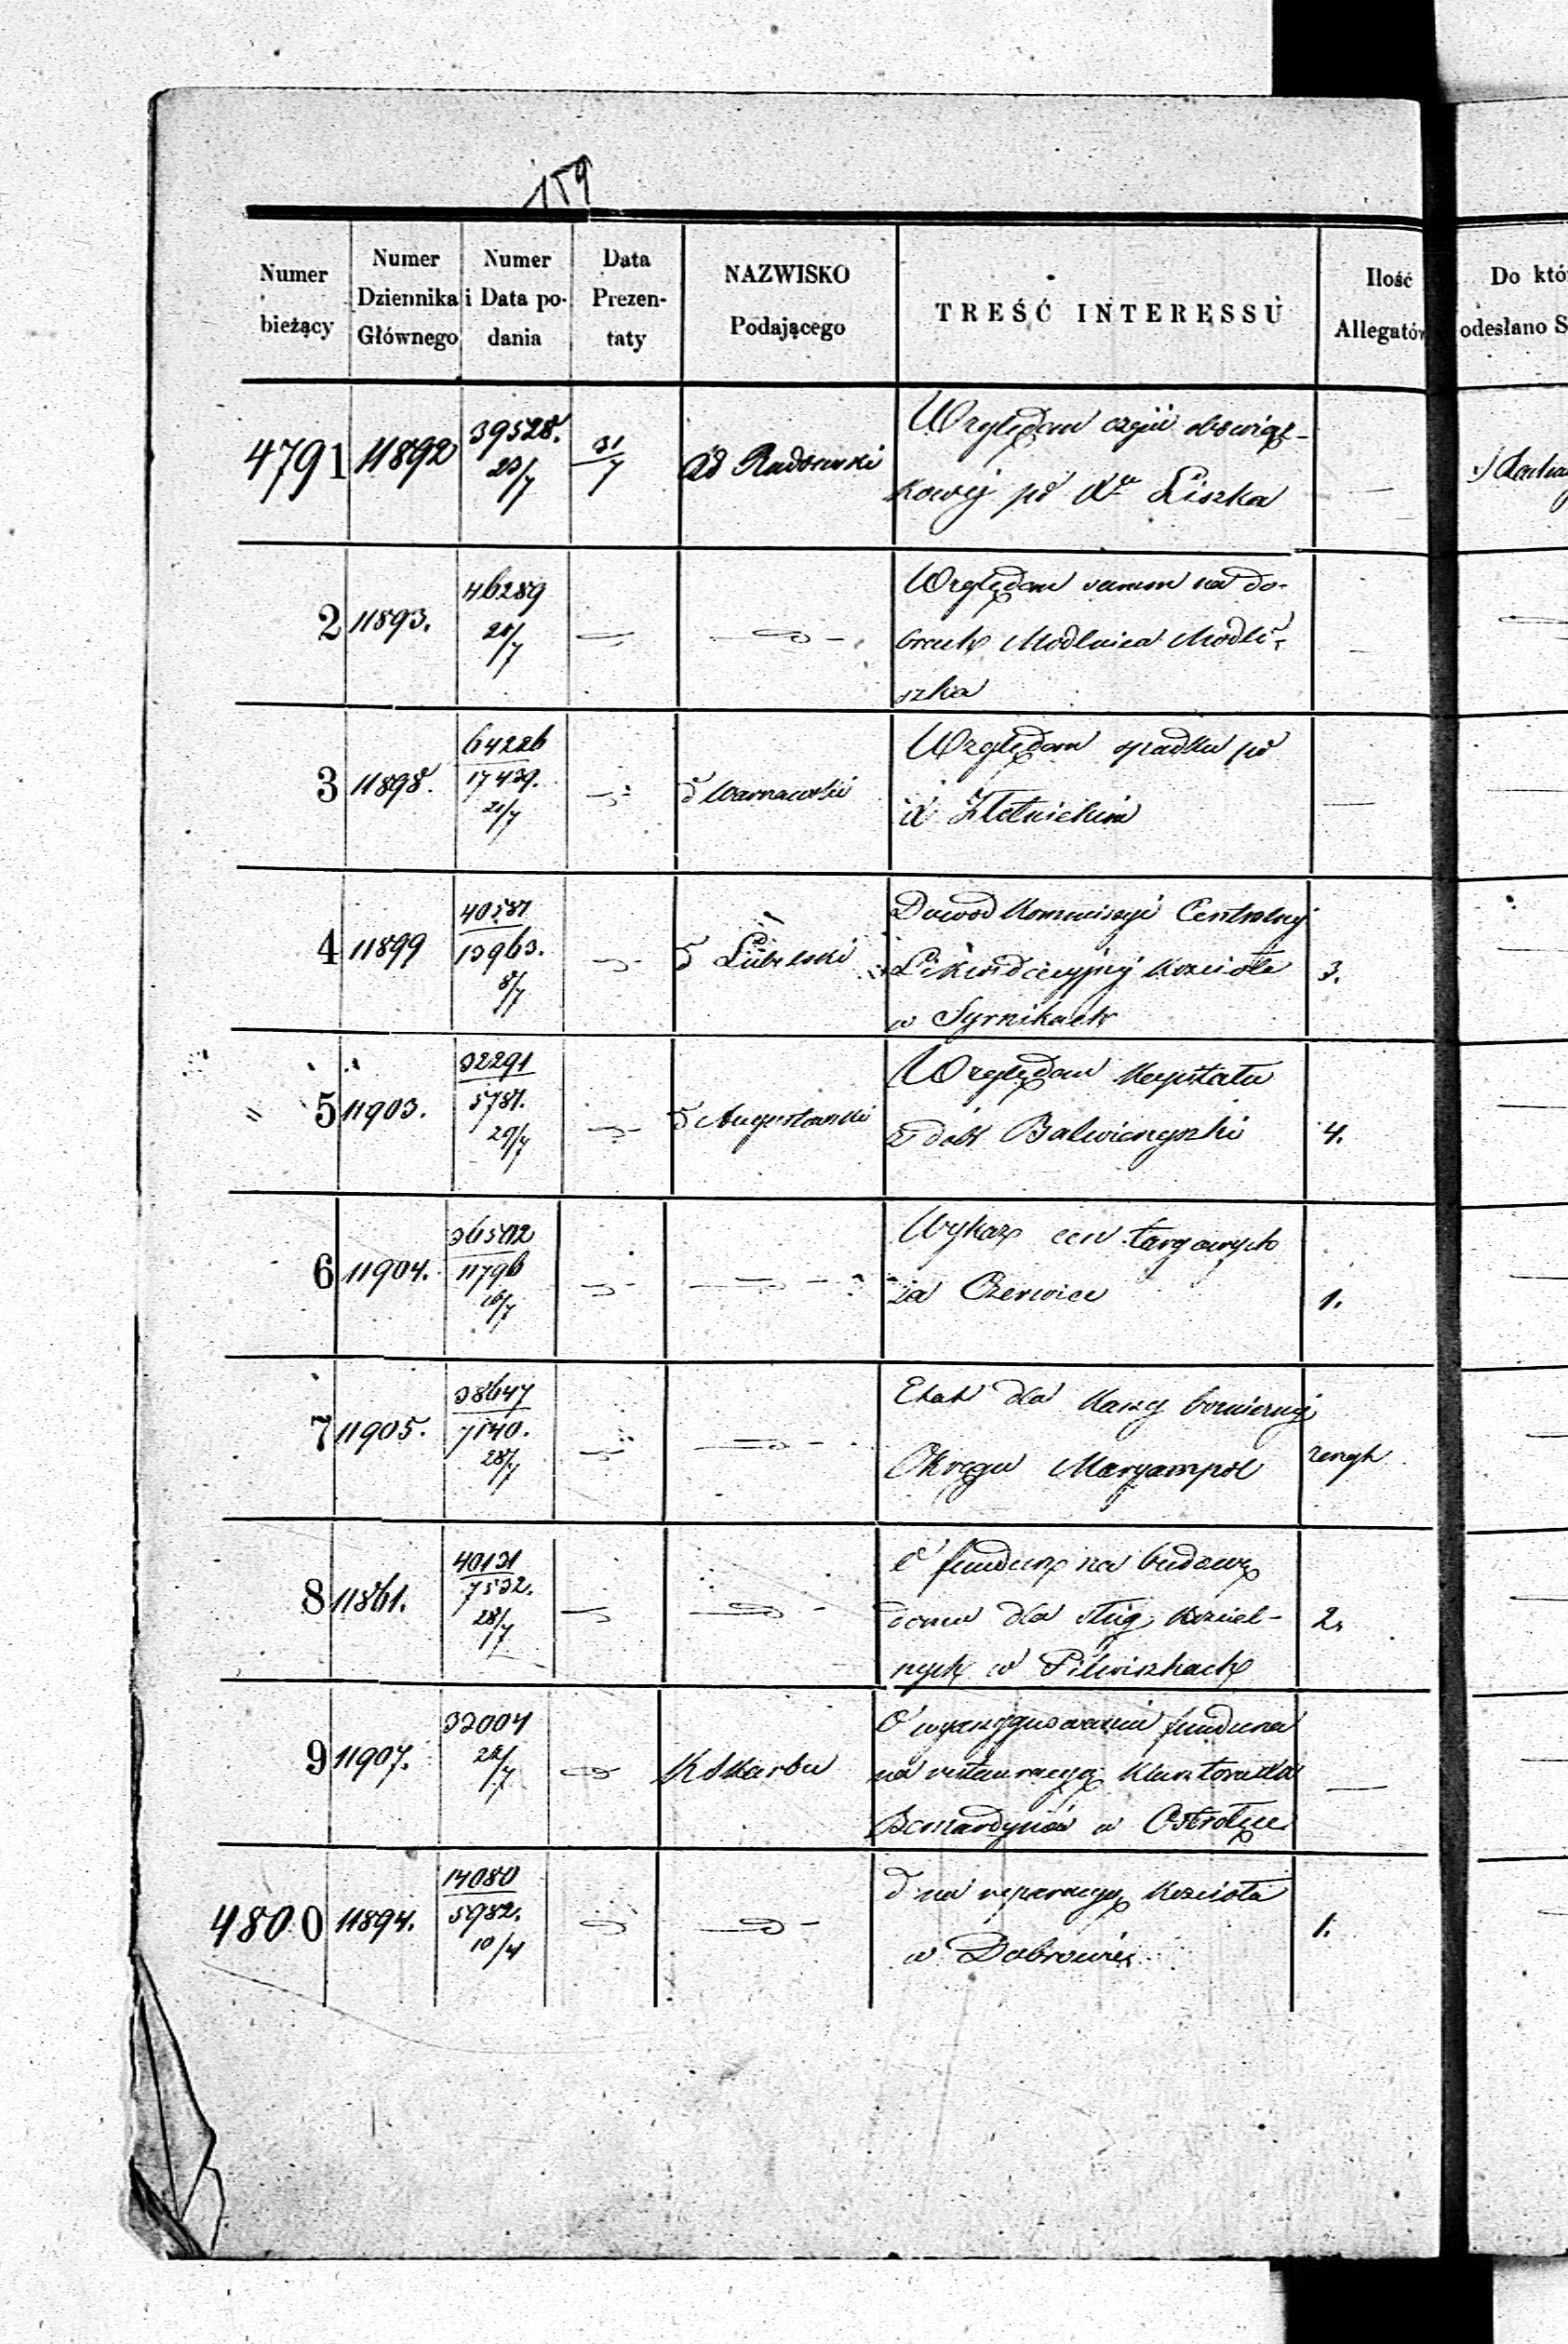 159
Numer bieżący | Numer Dziennika Głównego | Numer i Data podania | Data Prezentaty | NAZWISKO Podającego | TREŚĆ INTERESSU | Ilość Allegatów | Do któ
odesłano S
4791 11892 39528. 23/7 31/7 Względem części obowiąz-
kowej po Liszka —
2 11893. 46289 21/7 — — Względem summ na do-
brach Modlnica Modli-
szka —
3 11898. 64226 17439. 21/7 — d Warszawski Względem spadku po
Złotnickim —
4 11899 40587 13963. 8/7 — d Lubelski Dowod Kommissyi Centralnej
Likwidacyjnej Kościoła 3.
w Syrnikach
5 11903. 32291 5781. 29/7 — d Augustowski Względem Kapitału
z dóbr Balwierzyszki 4.
6 11904. 36502 11796 16/7 — — Wykaz cen targowych
za Czerwiec 1.
7 11905. 38647 7140. 28/7 — — Etat dla Kassy
Okręgu Maryampol
8 11861. 40131 7532. 28/7 — — o fundusz na budowę
domu dla sług Kościel- 2.
nych w Pilwiszkach
9 11907. 33004 28/7 — K Skarbu O wyassygnowanie fundusza
na restauracyą Klasztoru dla —
Bernardynów w Ostrołęce
4800 11894. 14080 5982. 10/4 — — d na reperacyą Kościoła 1.
w Dobrowie